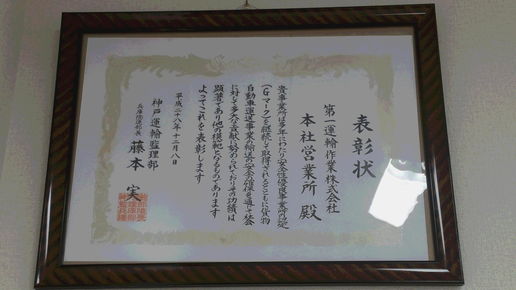 表彰状
第一運輸作業株式会社
本社営業所 殿
貴事業所は多年にわたり安全性優良事業所認定
(Gマーク)を継続して取得されるとともに貨物
自動車運送事業の輸送の安全確保を通じ社会
に対して多大な貢献に努められておりその功績は
顕著であり他の模範となるものであります
よってこれを表彰します
平成二十八年十二月八日
神戸運輸監理部
兵庫陸運部長 藤本 実